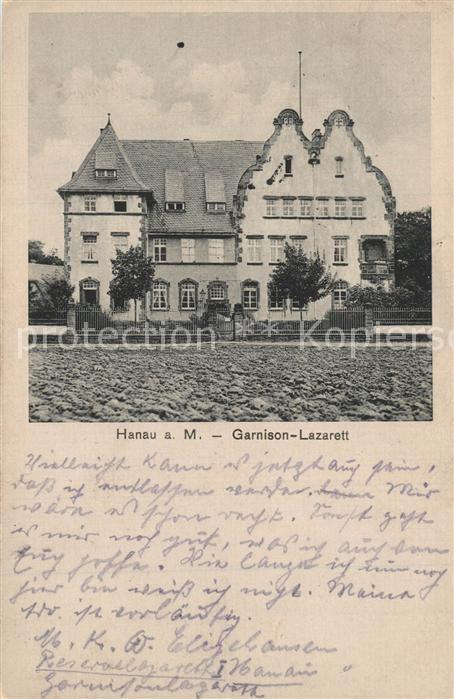 Hanau a. M. – Garnison-Lazarett
protection ** ** Kopierschutz
Vielleicht kann es jetzt auch sein,
daß ich entlassen werde. Mir
wäre es schon recht. Sonst geht
es mir noch gut, was ich auch von
Euch hoffe. Wie lange ich nun noch
hier bin weiß ich nicht. Meine
Adr. ist vorläufig.
Reservelazarett I Hanau
Garnisonlazarett